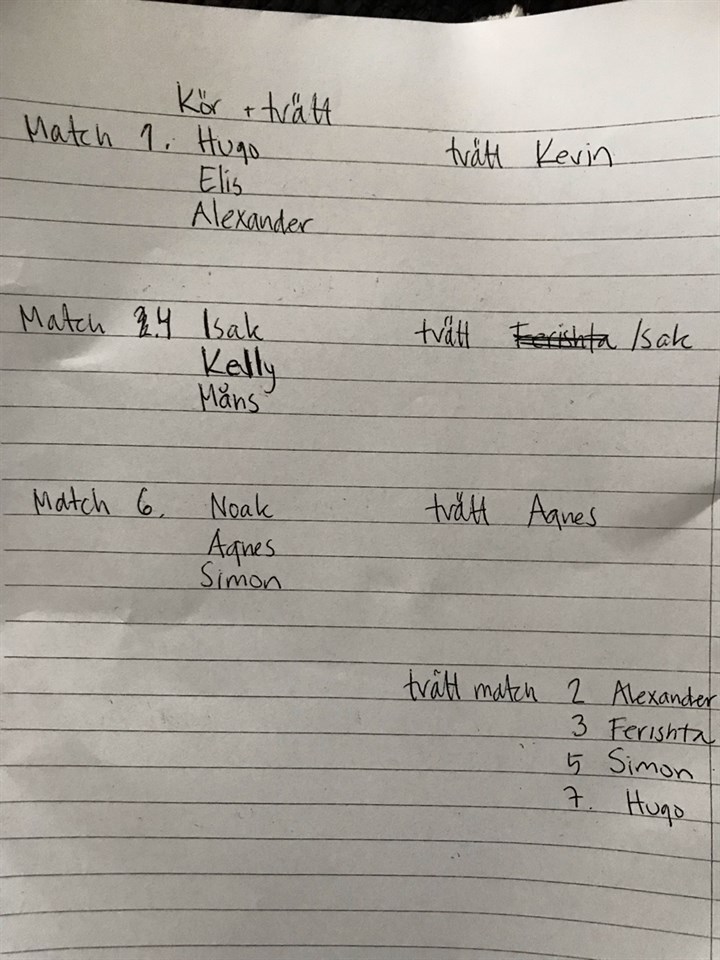 Kör + tvätt
Match 1. Hugo tvätt Kevin
Elis
Alexander
Match 4 Isak tvätt Ferishta Isak
Kelly
Måns
Match 6. Noak tvätt Agnes
Agnes
Simon
tvätt match 2 Alexander
3 Ferishta
5 Simon
7. Hugo